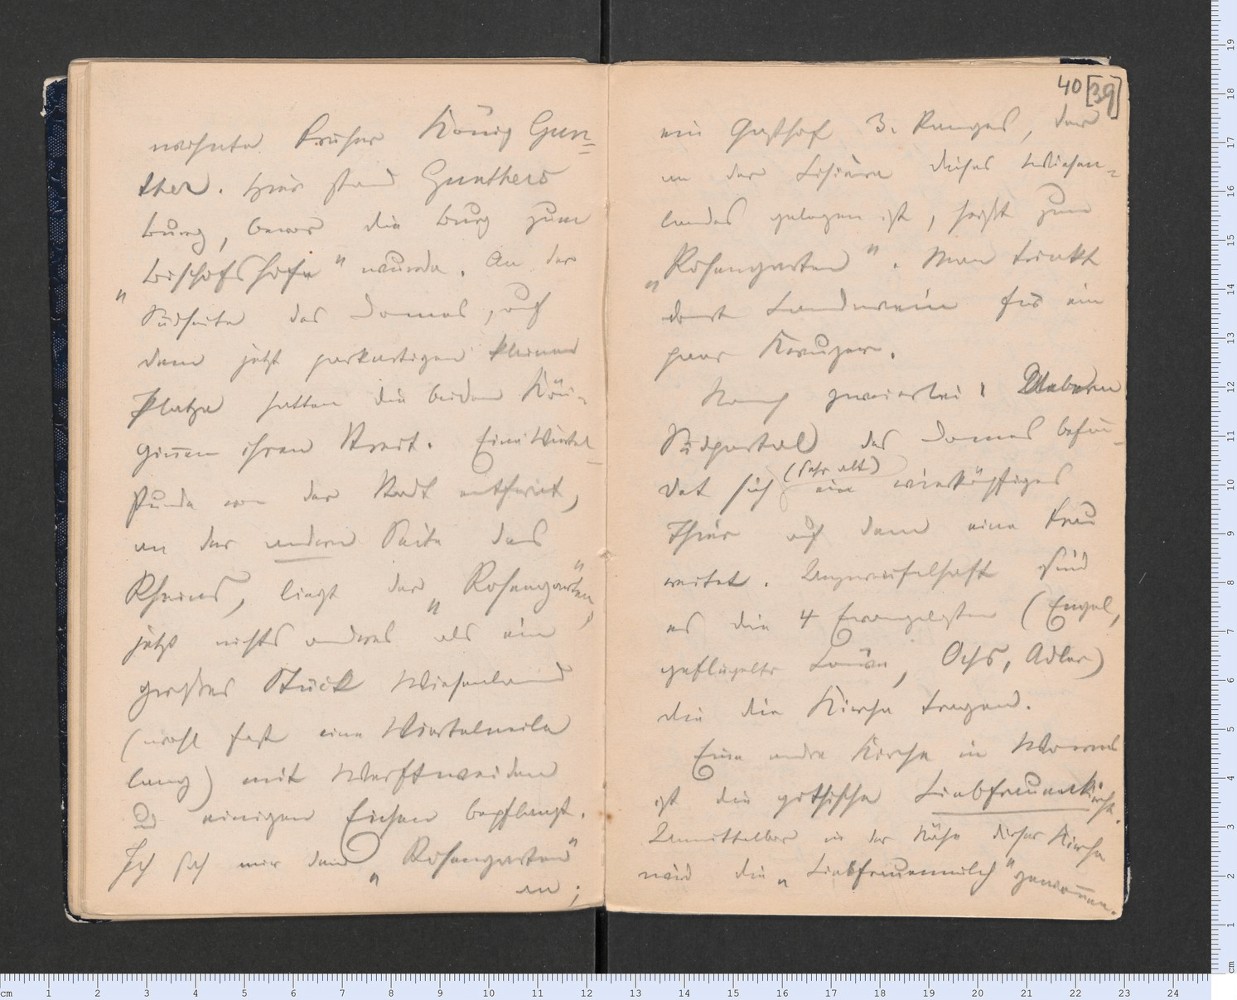 wohnte früher König Gun=
ther. Hier stand Gunthers
Burg, bevor die Burg zum
„Bischofshofe“ wurde. An der
Südseite des Domes, auf
dem jetzt parkartigen kleinen
Platze hatten die beiden Köni-
ginnen ihren Streit. Eine Viertel-
stunde von der Stadt entfernt,
an der andern Seite des
Rheins, liegt der „Rosengarten“,
jetzt nichts andres als ein
großes Stück Wiesenland
(wohl fast eine Viertelmeile
lang) mit Werftweiden
u einigen Eichen bepflanzt.
Ich sah mir den „Rosengarten“
an;
40 [39]
ein Gasthof 3. Ranges, der
an der Lisière dieses Wiesen=
landes gelegen ist, heißt zum
„Rosengarten“. Man trinkt
dort Landwein für ein
paar Kreuzer.
Noch zweierlei: Ueberm
Südportal des Domes befin-
det sich (sehr alt) ein vierköpfiges
Thier auf dem eine Frau
reitet. Unzweifelhaft sind
es die 4 Evangelisten (Engel,
geflügelter Löwe, Ochs, Adler)
die die Kirche tragen.
Eine andre Kirche in Worms
ist die gothische Liebfrauenkirche.
Unmittelbar in der Nähe dieser Kirche
wird die „Liebfrauenmilch“ gewonnen.